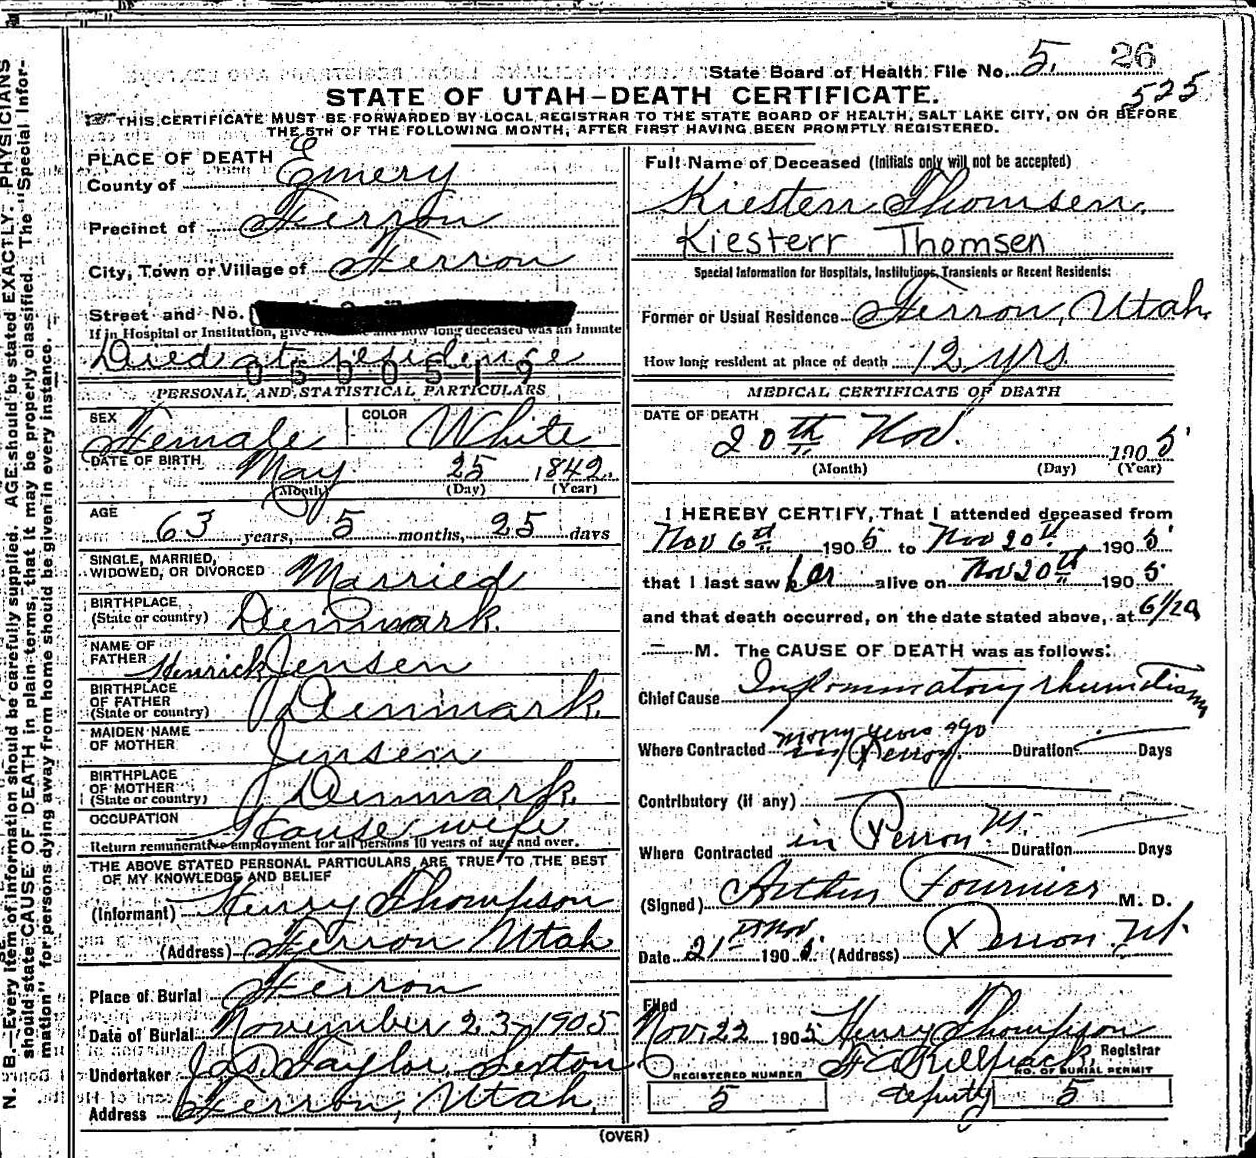 State Board of Health File No. 5. 26
525
STATE OF UTAH—DEATH CERTIFICATE.
THIS CERTIFICATE MUST BE FORWARDED BY LOCAL REGISTRAR TO THE STATE BOARD OF HEALTH, SALT LAKE CITY, ON OR BEFORE
THE 5TH OF THE FOLLOWING MONTH, AFTER FIRST HAVING BEEN PROMPTLY REGISTERED.
N. B.—Every item of information should be carefully supplied. AGE should be stated EXACTLY. PHYSICIANS
should state CAUSE OF DEATH in plain terms, that it may be properly classified. The "Special Infor-
mation" for persons dying away from home should be given in every instance.
PLACE OF DEATH
County of Emery
Precinct of Ferron
City, Town or Village of Ferron
Street and No.
If in Hospital or Institution, give how long deceased was an inmate
Died at residence
0500519
PERSONAL AND STATISTICAL PARTICULARS
SEX Female COLOR White
DATE OF BIRTH May 25 1842
(Month) (Day) (Year)
AGE 63 years, 5 months, 25 days
SINGLE, MARRIED,
WIDOWED, OR DIVORCED Married
BIRTHPLACE
(State or country) Denmark.
NAME OF
FATHER Henrick Jensen
BIRTHPLACE
OF FATHER
(State or country) Denmark.
MAIDEN NAME
OF MOTHER Jensen
BIRTHPLACE
OF MOTHER
(State or country) Denmark.
OCCUPATION House wife
Return remunerative employment for all persons 10 years of age and over.
THE ABOVE STATED PERSONAL PARTICULARS ARE TRUE TO THE BEST
OF MY KNOWLEDGE AND BELIEF
(Informant) Henry Thompson
(Address) Ferron Utah
Place of Burial Ferron
Date of Burial November 23-1905
Undertaker J. D. Taylor, Sexton
Address Ferron, Utah.
Full Name of Deceased (Initials only will not be accepted)
Kiesten Thomsen.
Kiesterr Thomsen
Special Information for Hospitals, Institutions, Transients or Recent Residents:
Former or Usual Residence Ferron, Utah.
How long resident at place of death 12 yrs
MEDICAL CERTIFICATE OF DEATH
DATE OF DEATH
20th Nov. 1905
(Month) (Day) (Year)
I HEREBY CERTIFY, That I attended deceased from
Nov 6th 1905 to Nov 20th 1905
that I last saw her alive on Nov 20th 1905
and that death occurred, on the date stated above, at 6 1/2 a
M. The CAUSE OF DEATH was as follows:
Chief Cause Inflommatory rhumatism
many years ago
Where Contracted in Ferron. Duration Days
Contributory (if any)
Where Contracted in Ferron Ut. Duration Days
(Signed) Arthur Fournier M. D.
Date 21st Nov 1905. (Address) Ferron Ut.
Filed
Nov. 22 1905 Henry Thompson
Registrar
REGISTERED NUMBER
5
deputy
NO. OF BURIAL PERMIT
5
(OVER)